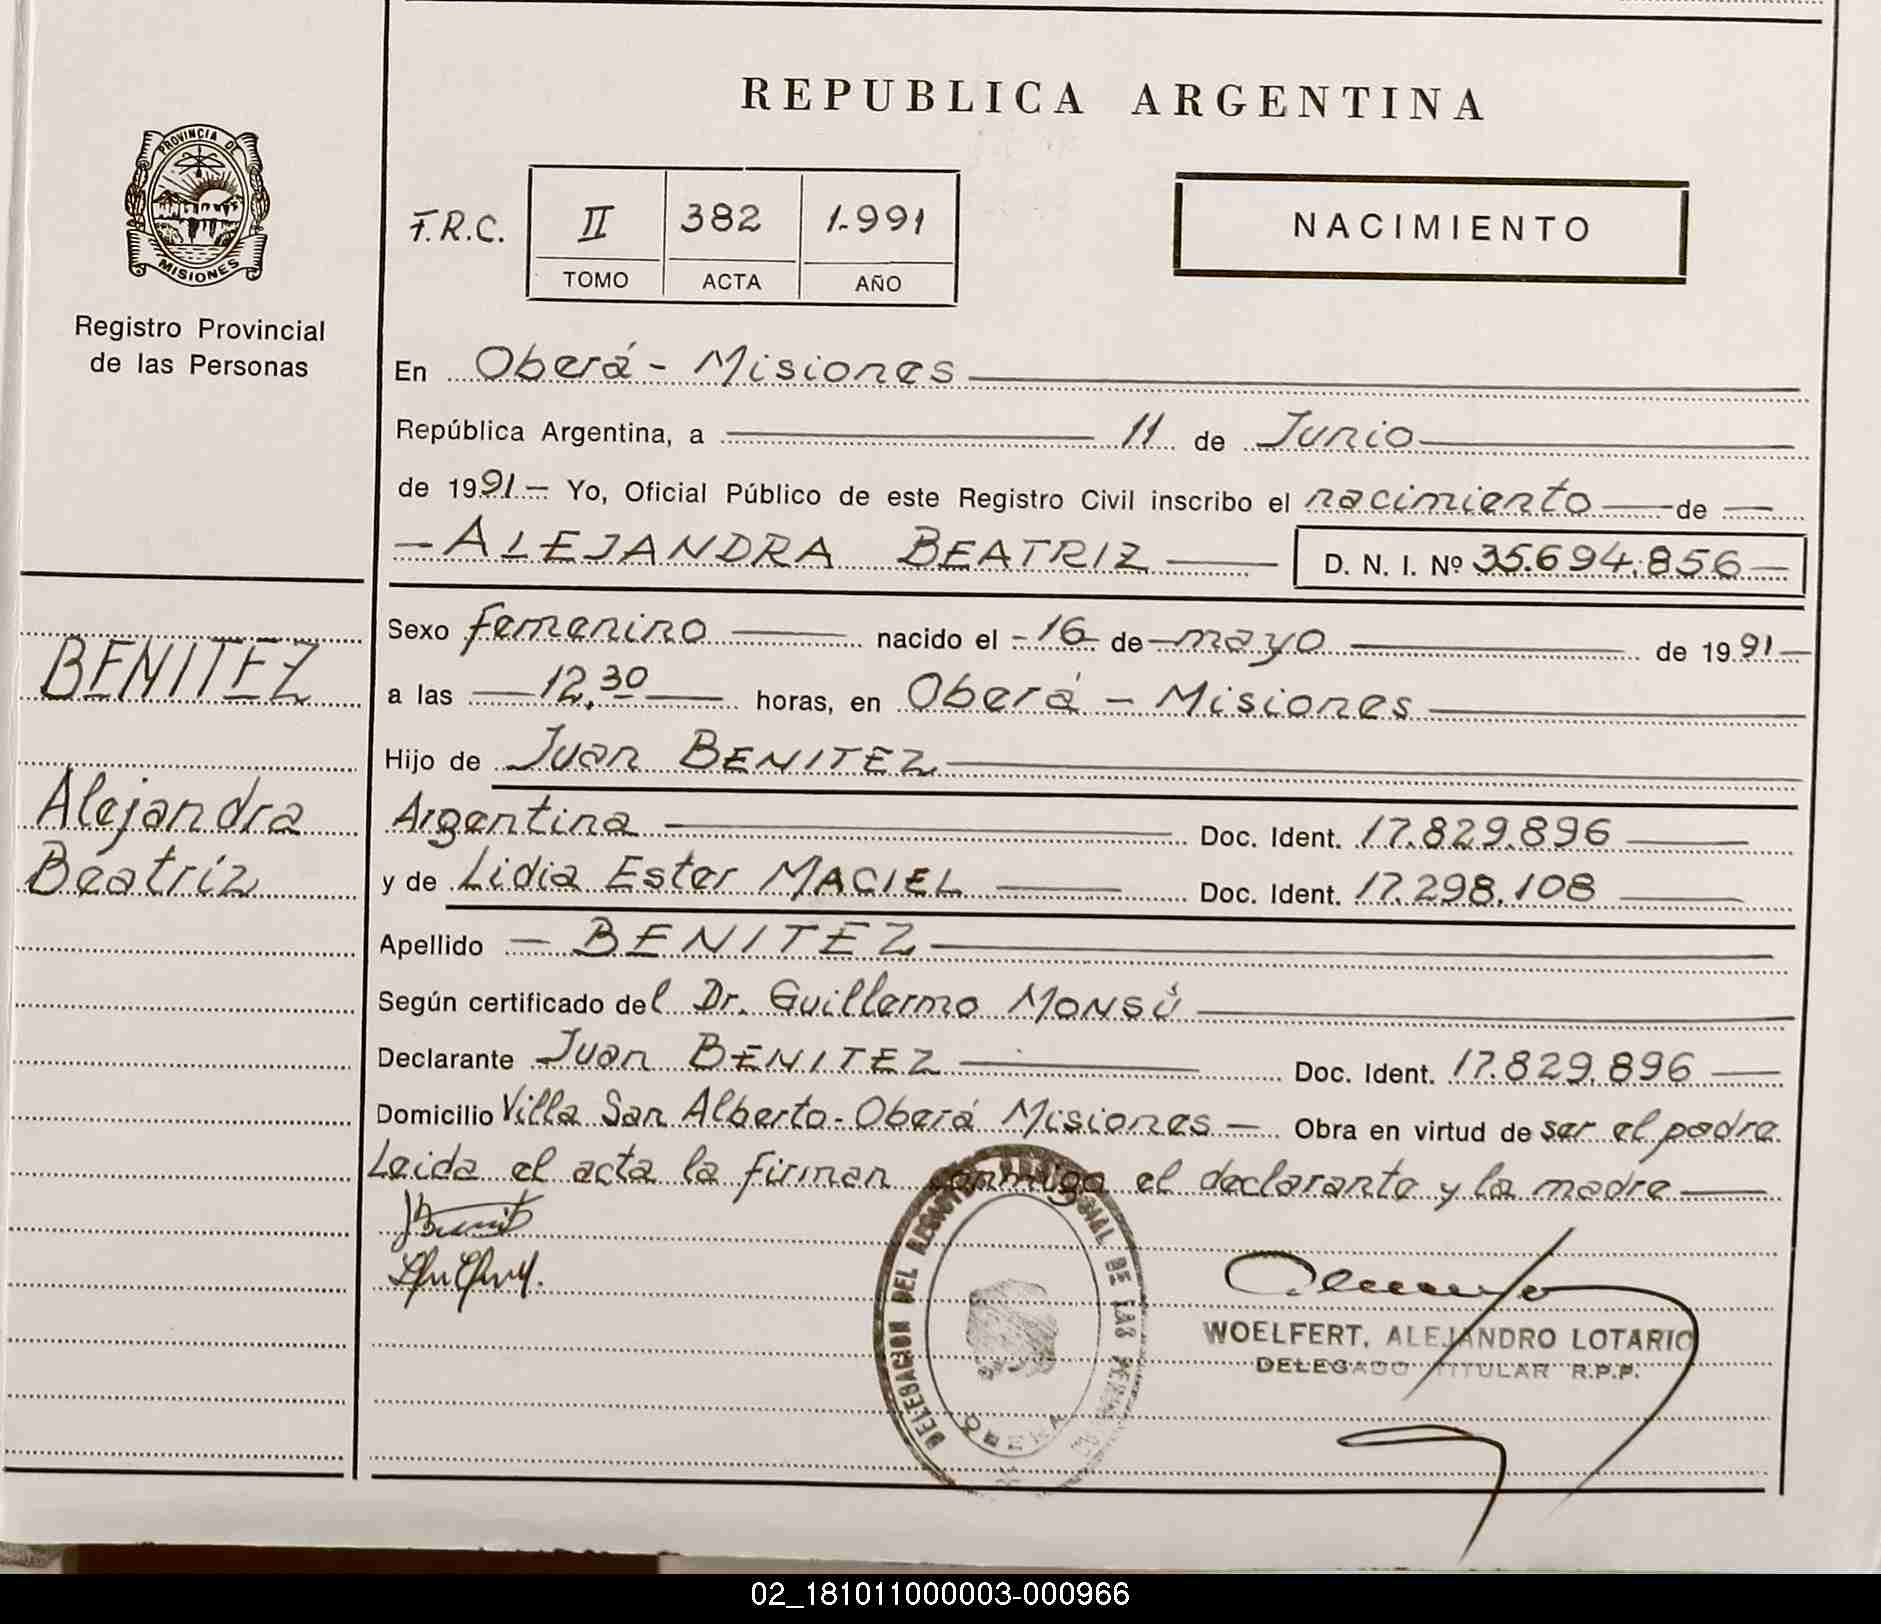 REPUBLICA ARGENTINA
PROVINCIA DE
MISIONES
Registro Provincial
de las Personas
F.R.C. II 382 1.991
TOMO ACTA AÑO
NACIMIENTO
En Oberá - Misiones
República Argentina, a 11 de Junio
de 1991 - Yo, Oficial Público de este Registro Civil inscribo el nacimiento de
- ALEJANDRA BEATRIZ D. N. I. Nº 35.694.856
Sexo femenino nacido el 16 de mayo de 1991
a las 12,30 horas, en Oberá - Misiones
Hijo de Juan BENITEZ
Argentina Doc. Ident. 17.829.896
y de Lidia Ester MACIEL Doc. Ident. 17.298.108
Apellido - BENITEZ
Según certificado del Dr. Guillermo MONSÚ
Declarante Juan BENITEZ Doc. Ident. 17.829.896
Domicilio Villa San Alberto - Oberá Misiones - Obra en virtud de ser el padre
Leida el acta la firman conmigo el declarante y la madre
BENITEZ
Alejandra
Beatríz
DELEGACION DEL REGISTRO PROVINCIAL DE LAS PERSONAS
OBERA
WOELFERT, ALEJANDRO LOTARIO
DELEGADO TITULAR R.P.P.
02_181011000003-000966